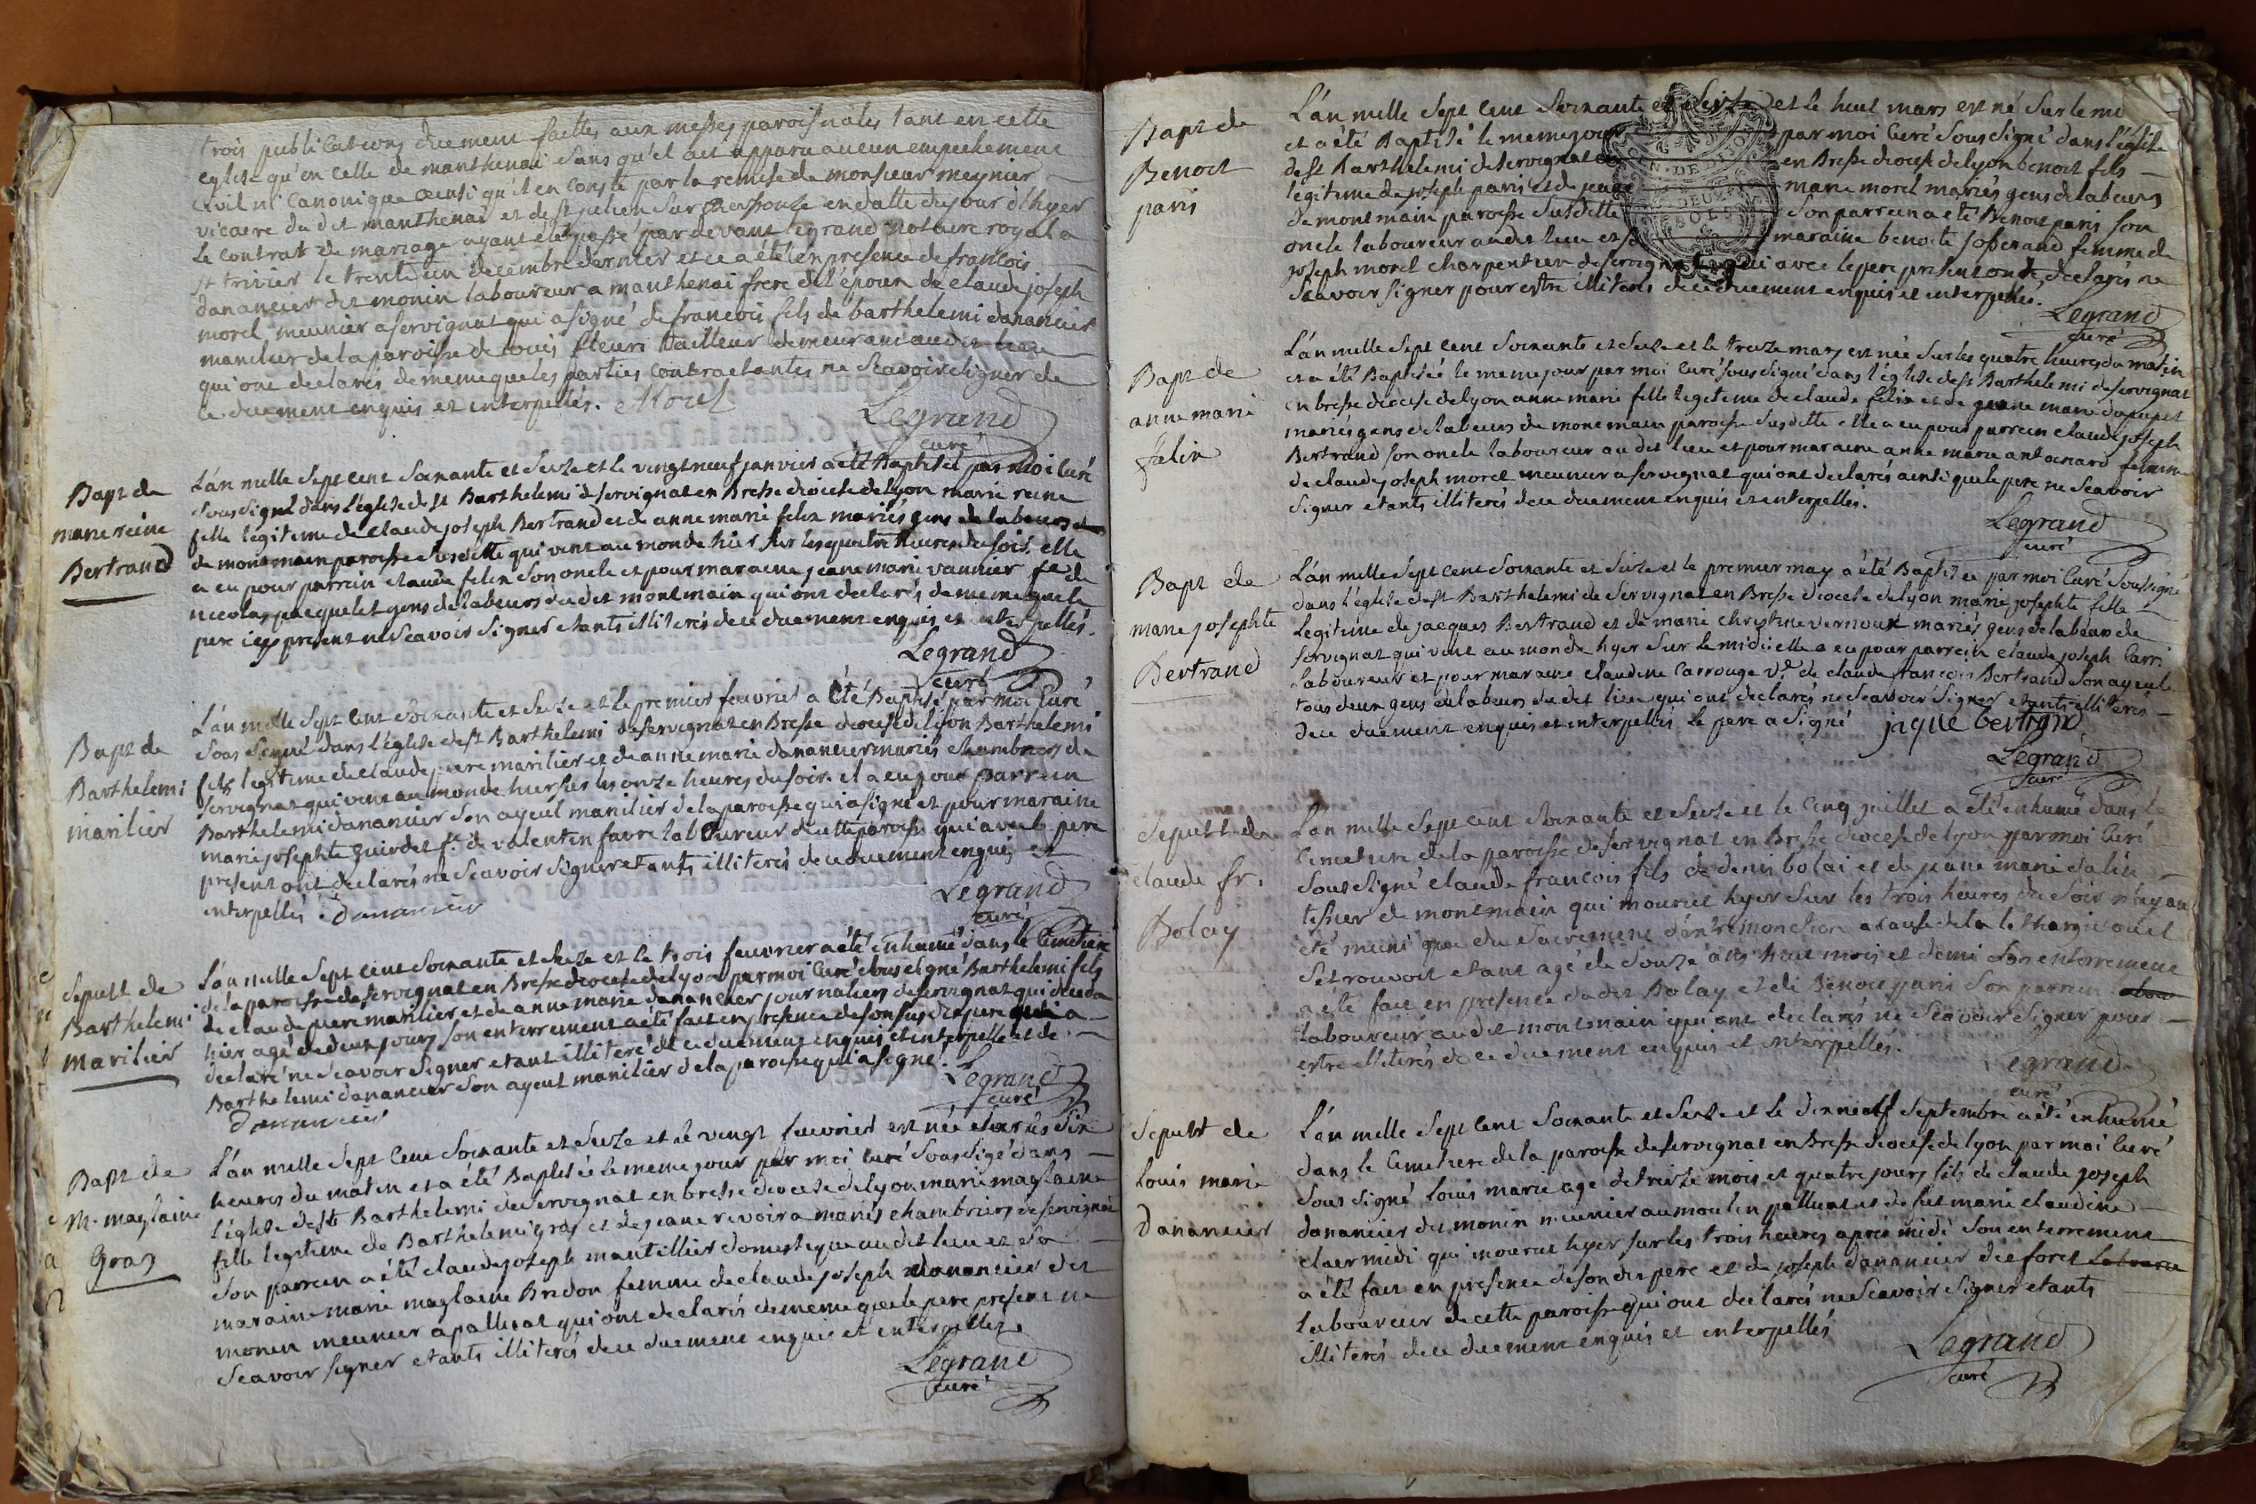 trois publications duement faittes aux messes paroissiales tant en cette
eglise qu'en celle de manthenai sans qu'il ait apparu aucun empechement
civil ni canonique ainsi qu'il en conste par la remise de monsieur meynier
vicaire du dit manthenai et de st julien sur Ressouze en datte du jour d'hyer
le contrat de mariage ayant été passé par devant legrand notaire royal a
st trivier le trente un decembre dernier et ce a été en presence de francois
danancier dit monin laboureur a manthenai frere de l'époux de claude joseph
morel meunier a servignat qui a signé de francois fils de barthelemi danancier
manilier de la paroisse de fleuri tailleur demeurant au dit lieu
qui ont declarés de meme que les parties contractantes ne Scavoir signer de
ce duement enquis et interpellés. Morel
Legrand
curé
Bapt de
marie reine
Bertrand
L'an mille sept cent soixante et seize et le vingt neuf janvier a été Baptisée par moi Curé
sous signé dans l'église de st Barthelemi de servignat en Bresse diocese de Lyon marie reine
fille legitime de claude joseph Bertrand et de anne marie felix mariés gens de labeurs
de montmain paroisse susditte qui vint au monde hier sur les quatre heures du soir elle
a eu pour parrein claude felix son oncle et pour maraine jeane marie vannier fe de
nicolas jacquelet gens de labeurs du dit montmain qui ont declarés de meme que le
pere icy present ne Scavoir signer etants illiterés de ce duement enquis et interpellés.
Legrand
curé
Bapt de
Barthelemi
marilier
L'an mille sept cent soixante et seize et le premier fevrier a été Baptisé par moi Curé
sous signé dans l'église de st Barthelemi de servignat en Bresse diocese de Lyon Barthelemi
fils legitime de claude piere marilier et de anne marie danancier mariés chambriers de
servignat qui vint au monde hier sur les onze heures du soir il a eu pour parrein
Barthelemi danancier son ayeul manilier de la paroisse qui a signé et pour maraine
marie josephte guirdet f. de valentin faure laboureur de cette paroisse qui avec le pere
present ont declarés ne Scavoir signer etants illiterés de ce duement enquis et
interpellés. danancier
Legrand
curé
Sepult de
Barthelemi
marilier
L'an mille sept cent soixante et seize et le trois feuvrier a été inhumé dans le Cimetiere
de la paroisse de servignat en Bresse diocese de Lyon par moi Curé sous signé Barthelemi fils
de claude piere marilier et de anne marie danancier journaliers de servignat qui deceda
hier agé de deux jours son enterrement a été fait en presence de son pere qui a
declaré ne Scavoir signer etant illiteré de ce duement enquis et interpellé et de
Barthelemi danancier son ayeul manilier de la paroisse qui a signé.
danancier
Legrand
curé
Bapt de
M. maglaine
Gras
L'an mille sept cent soixante et seize et le vingt feuvrier est née sur les six
heures du matin et a été Baptisée le meme jour par moi curé sous signé dans
l'église de st Barthelemi de servignat en bresse diocese de Lyon marie maglaine
fille legitime de Barthelemi gras et de jeane revoira mariés chambriers de servignat
son parrein a été claude joseph mantillier domestique au dit lieu et sa
maraine marie maglaine Bredon femme de claude joseph danancier dit
monin meunier a palluat qui ont declarés de meme que le pere present ne
Scavoir signer etants illiterés de ce duement enquis et interpellés.
Legrand
curé
Bapt de
Benoit
paris
L'an mille sept cent soixante et seize et le huit mars est né sur le mi
et a été Baptisé le meme jour par moi Curé sous signé dans l'église
de st Barthelemi de servignat en Bresse diocese de Lyon benoit fils
legitime de joseph paris et de jeane marie morel mariés gens de labeurs
de montmain paroisse susditte son parrein a été Benoit paris son
oncle laboureur au dit lieu et sa maraine benoite josserand femme de
joseph morel charpentier de servignat qui avec le pere present ont declarés ne
Scavoir signer pour estre illiterés de ce duement enquis et interpellés.
Legrand
curé
Bapt de
anne marie
falix
L'an mille sept cent soixante et seize et le treize mars est née sur les quatre heures du matin
et a été Baptisée le meme jour par moi curé sous signé dans l'église de st Barthelemi de servignat
en bresse diocese de Lyon anne marie fille legitime de claude felix et de jeane marie dupupet
mariés gens de labeurs de montmain paroisse susditte elle a eu pour parrein claude joseph
Bertrand son oncle laboureur au dit lieu et pour maraine anne marie antoinard femme
de claude joseph morel meunier a servignat qui ont declarés ainsi que le pere ne Scavoir
signer etants illiterés de ce duement enquis et interpellés.
Legrand
curé
Bapt de
marie josephte
Bertrand
L'an mille sept cent soixante et seize et le premier may a été Baptisée par moi Curé soussigné
dans l'église de st Barthelemi de Servignat en Bresse diocese de Lyon marie josephte fille
legitime de jacques Bertrand et de marie christine vernoux mariés gens de labeur de
servignat qui vint au monde hyer sur le midi elle a eu pour parrein claude joseph Carri
laboureur et pour maraine claudine Carrouge ve de claude francois Bertrand son ayeule
tous deux gens de labeurs du dit lieu qui ont declarés ne Scavoir signer etants illiterés
de ce duement enquis et interpellés le pere a signé jaque bertrand
Legrand
curé
Sepult de
claude fr.
Bolay
L'an mille sept cent soixante et seize et le Cinq juillet a été inhumé dans le
Cimetiere de la paroisse de servignat en Bresse diocese de Lyon par moi Curé
sous signé claude francois fils de denis bolai et de jeane marie dalin
tissier de montmain qui mourut hyer sur les trois heures du soir n'ayant
été muni que du sacrement d'extremonction a cause de la lethargie ou il
se trouvoit etant agé de douze ans huit mois et demi son enterrement
a été fait en presence du dit Bolay et de Benoit paris son parrein
laboureur au dit montmain qui ont declarés ne Scavoir signer pour
estre illiterés de ce duement enquis et interpellés.
Legrand
curé
Sepult de
Louis marie
danancier
L'an mille sept cent soixante et seize et le dixneuf septembre a été inhumé
dans le Cimetiere de la paroisse de servignat en Bresse diocese de lyon par moi Curé
sous signé louis marie agé de treize mois et quatre jours fils de claude joseph
danancier dit monin meunier au moulin palluat et de fut marie claudine
clair midi qui mourut hyer sur les trois heures apres midi son enterrement
a été fait en presence de son dit pere et de joseph danancier dit foret
laboureur de cette paroisse qui ont declarés ne Scavoir signer etants
illiterés de ce duement enquis et interpellés
Legrand
curé